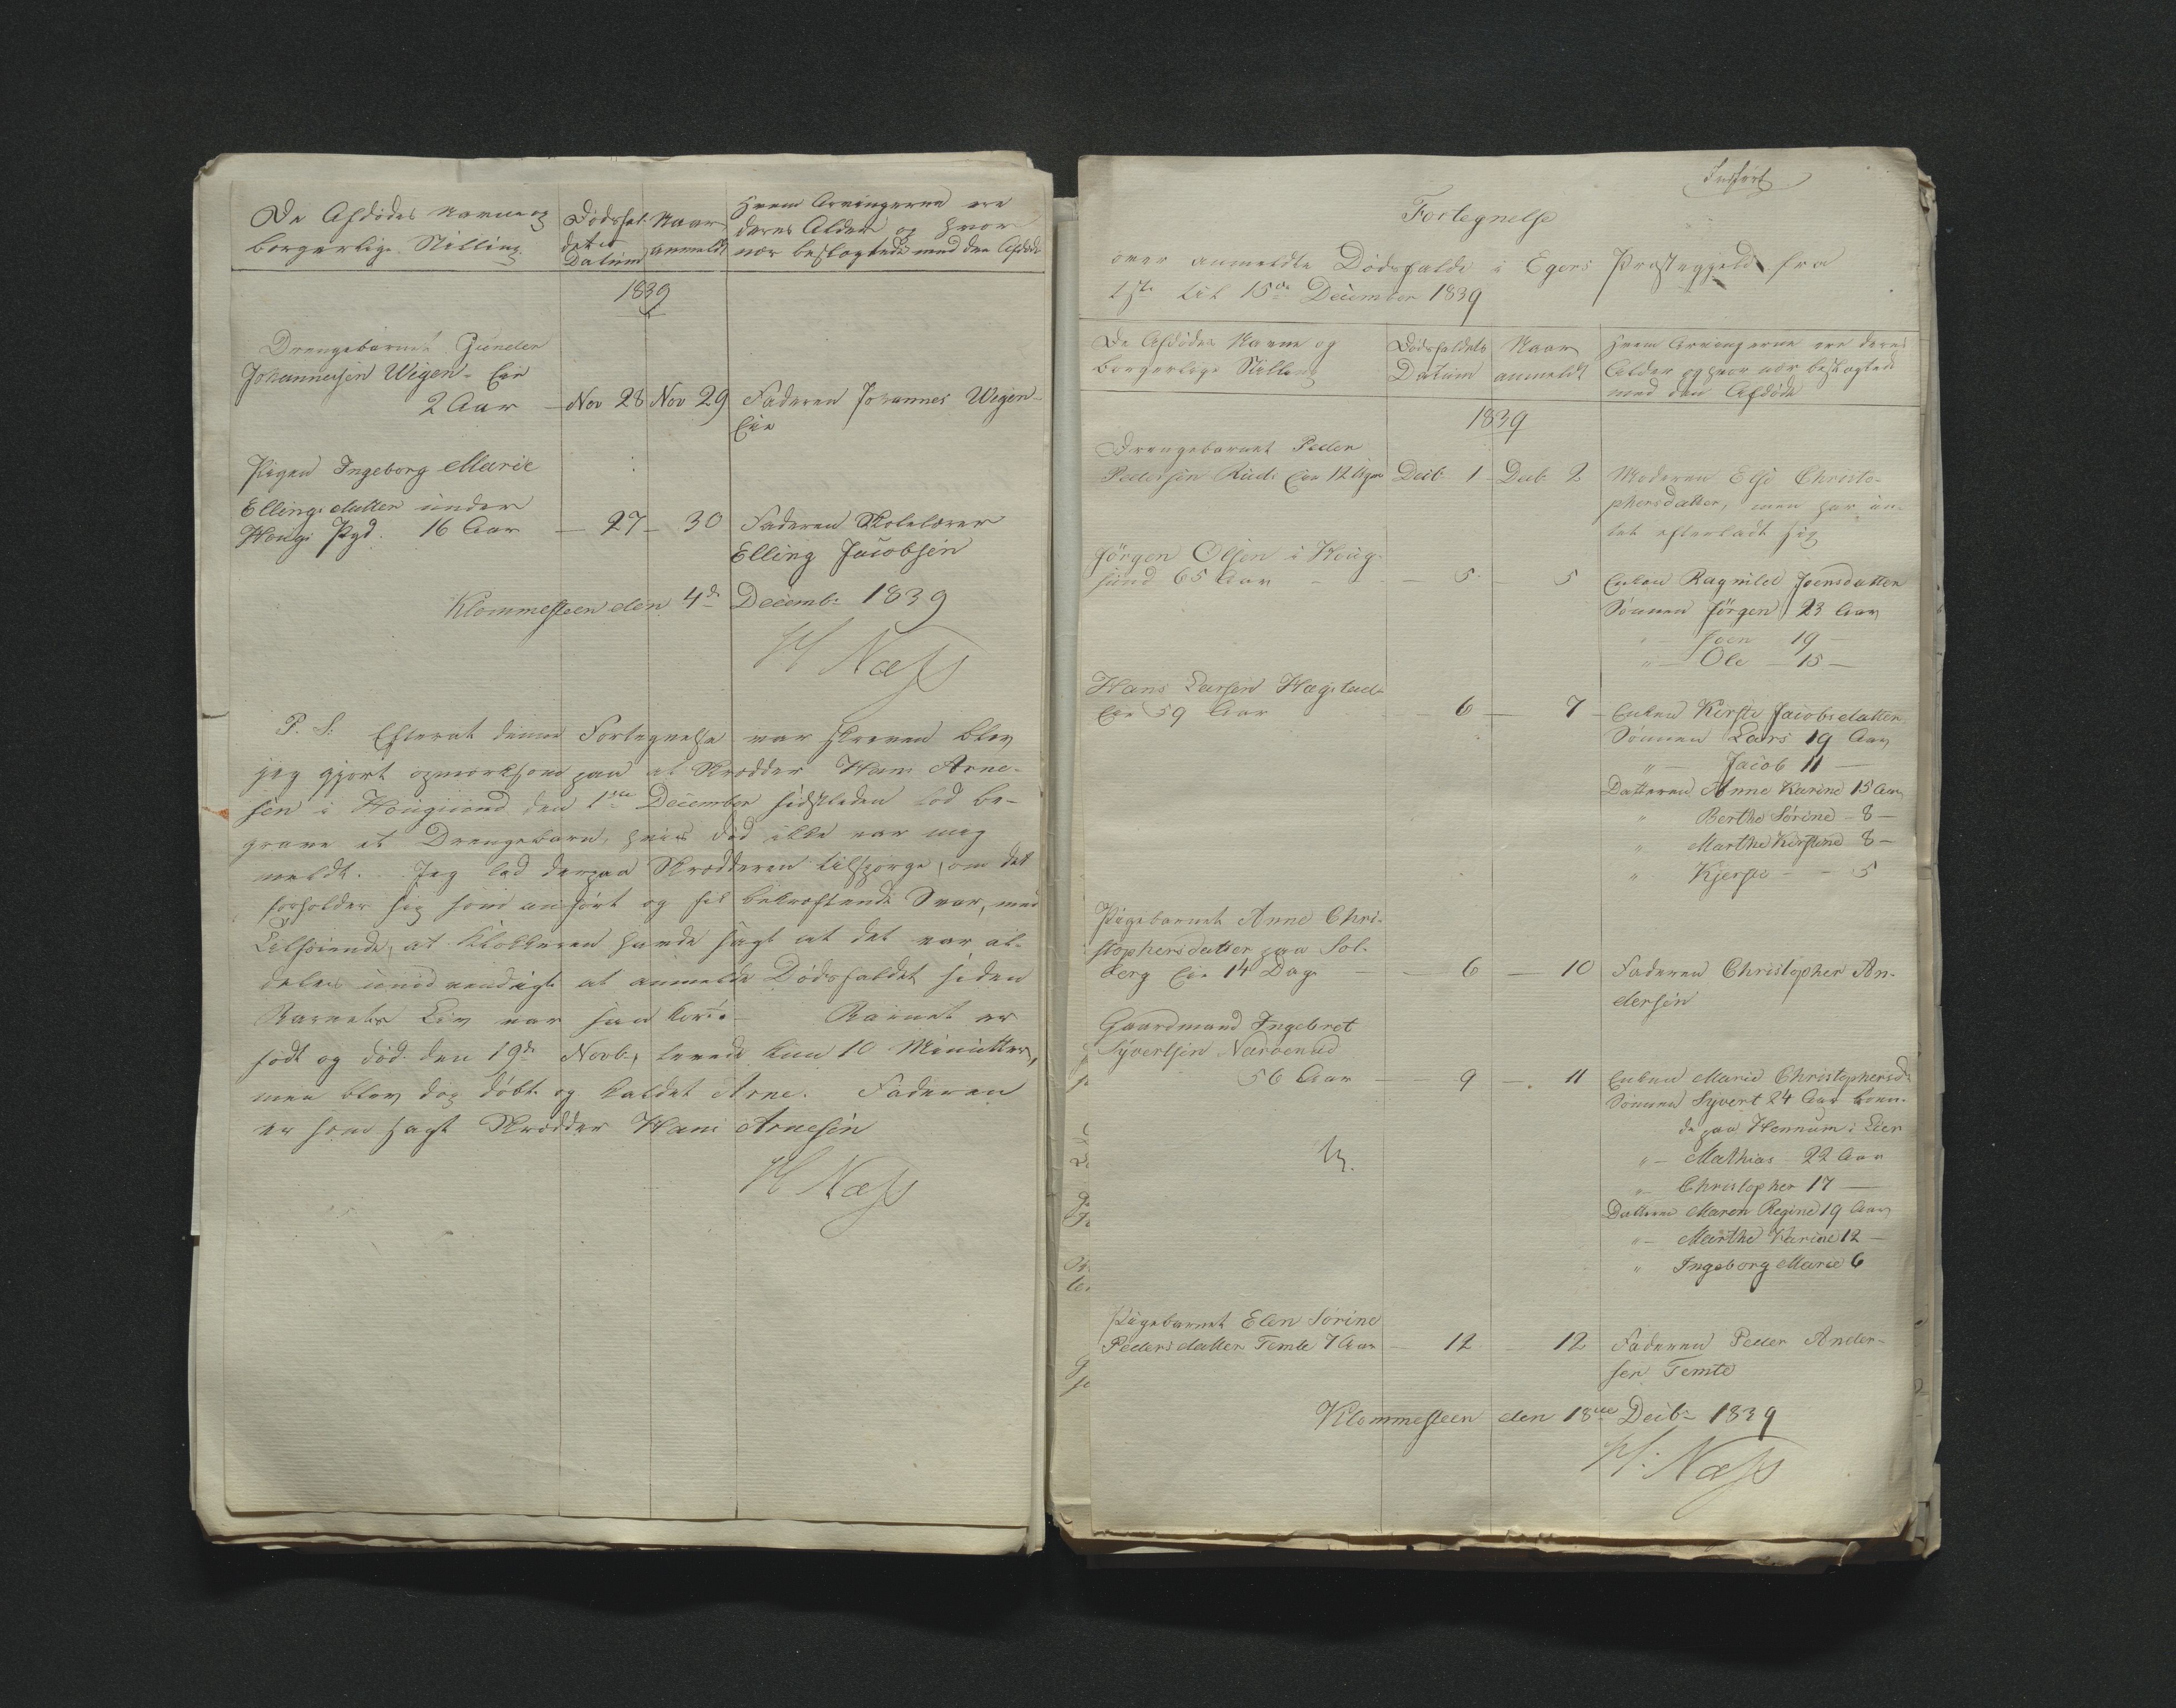 De Afdödes Navne og
borgerlige Stilling.
Dödsfal-
dets
Datum
Naar
anmeldt
Hvem Arvingerne ere
deres Alder og hvor
nær beslægtede med den Afdöde
1839
Drengebarnet Gunder
Johannesen Wigen- Eie
2 Aar — Nov 28 Nov 29 Faderen Johannes Wigen-
Eie
Pigen Ingeborg Marie
Ellingsdatter under
Hougs Pgd. 16 Aar — 27 — 30 Faderen Skolelærer
Elling Jacobsen
Klommesteen den 4de Decemb: 1839
H Næss
P. S. Efterat denne Fortegnelse var skreven blev
jeg gjort opmærksom paa at Skrædder Hans Arne-
sen i Hougsund den 1ste December sidstleden lod be-
grave et Drengebarn, hvis Död ikke var mig
meldt. Jeg lod derpaa Skrædderen tilspörge, om det
forholder sig som anfört og fik bekræftende Svar, med
Tilföiende, at Klokkeren havde sagt at det var al-
deles unödvendigt at anmelde Dödsfaldet siden
Barnets Liv var saa kort. Barnet er
födt og död den 19de Novb:, levede kun 10 Minutter,
men blev dog döbt og kaldet Arne. Faderen
er som sagt Skrædder Hans Arnesen
H Næss
Indfört
Fortegnelse
over anmeldte Dödsfalde i Egers Præstegjeld fra
1ste til 15de December 1839
De Afdödes Navne og
borgerlige Stilling
Dödsfaldets
Datum
Naar
anmeldt
Hvem Arvingerne ere deres
Alder og hvor nær beslægtede
med den Afdöde
1839
Drengebarnet Peder
Pedersen Ruds Eie 12 Uger Decb: 1 Decb: 2 Moderen Else Christo-
phersdatter, men har in-
tet efterladt sig
Jörgen Olsen i Houg-
sund 65 Aar — 5 — 5 Enken Ragnild Joensdatter
Sönnen Jörgen 23 Aar
" — Joen 19 —
" — Ole — 15 —
Hans Larsen Hagstad-
Eie 59 Aar — 6 — 7 — Enken Kirsti Jacobsdatter
Sönnen Lars 19 Aar
" — Jacob 11 —
Datteren Anne Karine 15 Aar
" Berthe Sörine — 8 —
" Marthe Kirstine 8 —
" Kjersti — — 5
Pigebarnet Anne Chri-
stophersdatter paa Sol-
berg Eie 14 Dage — 6 — 10 Faderen Christopher An-
dersen
Gaardmand Ingebret
Syvertsen Narverud
56 Aar — 9 — 11 Enken Marie Christophersd:
Sönnen Syvert 24 Aar boen-
de paa Hennum i Lier
" — Mathias 22 Aar
" — Christopher 17 —
Datteren Maren Regine 19 Aar
" — Marthe Karine 12 —
" Ingeborg Marie 6
Pigebarnet Elen Sörine
Pedersdatter Temte 7 Aar — 12 — 12 Faderen Peder Ander-
sen Temte
Klommesteen den 18de Decb: 1839
H: Næss